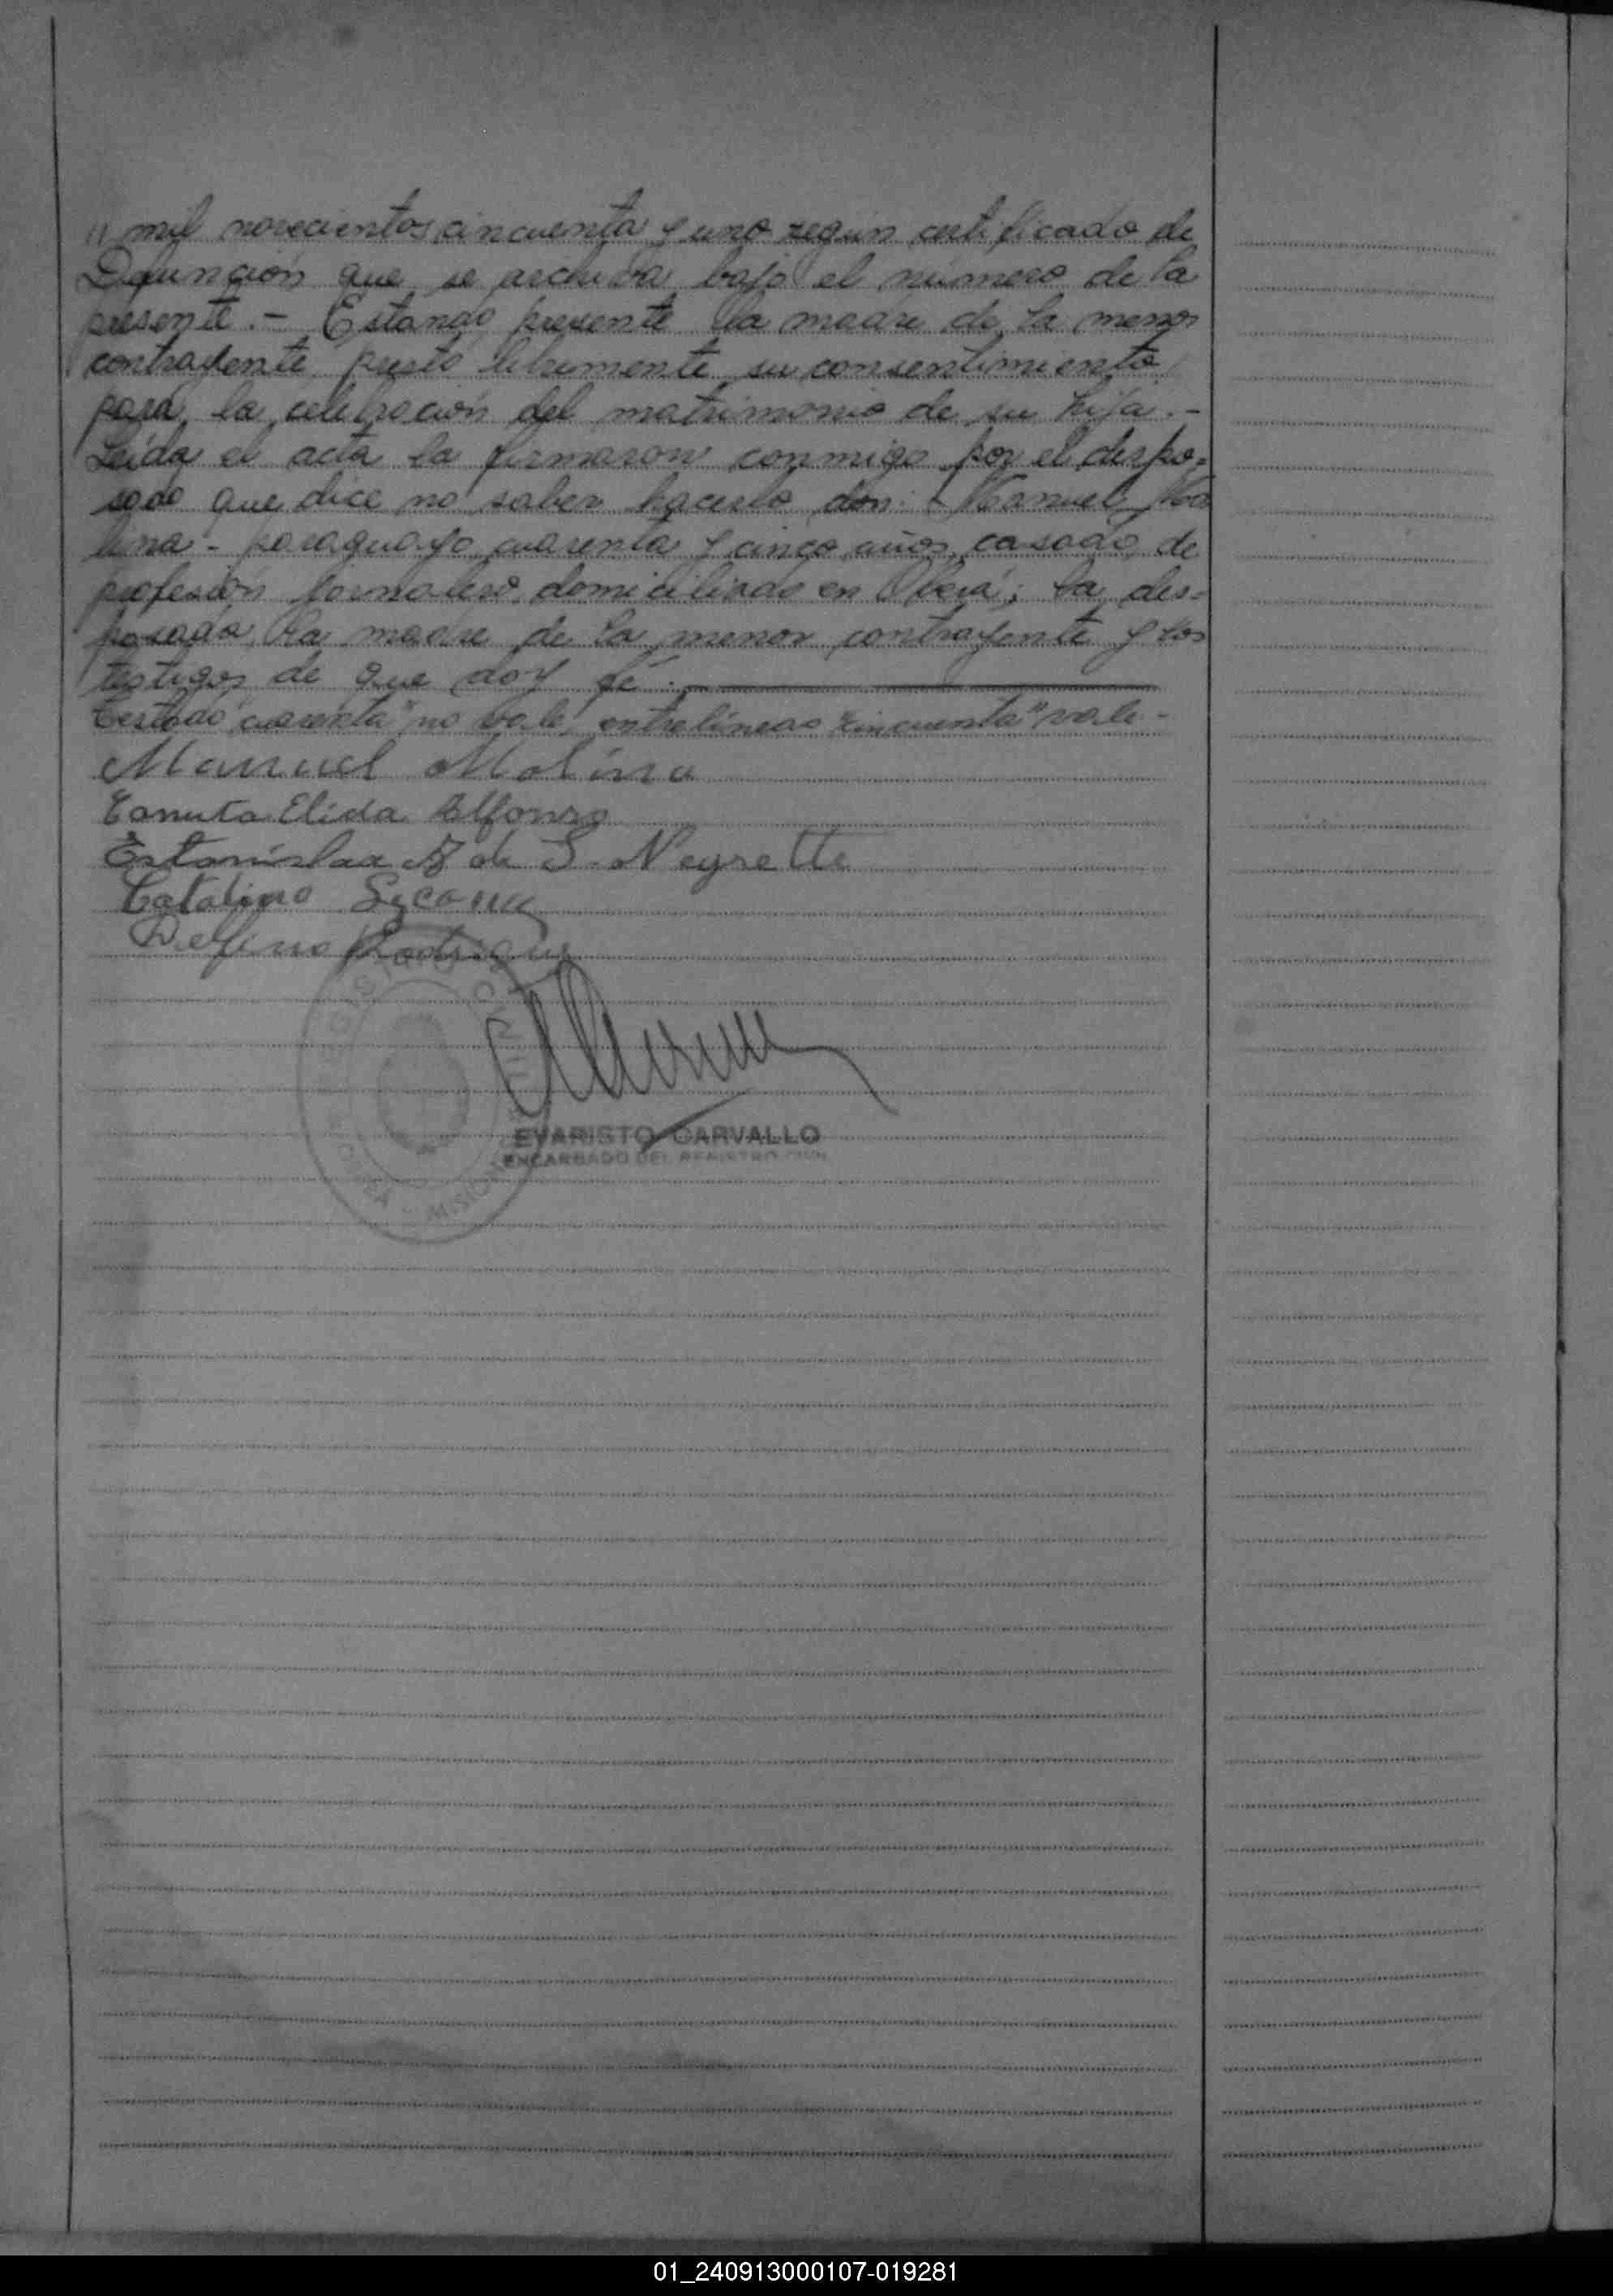 " mil novecientos cincuenta y uno según certificado de
Defunción que se archiva bajo el número de la
presente.- Estando presente la madre de la menor
contrayente presto libremente su consentimiento
para la celebración del matrimonio de su hija.-
Leída el acta la firmaron conmigo por el despo=
sado que dice no saber hacerlo don: Manuel Mo
lina - paraguayo cuarenta y cinco años, casado, de
profesión jornalero, domiciliado en Oberá; la des=
posada, la madre de la menor contrayente y los
testigos de que doy fé.
Testado "cuarenta" no vale, entrelíneas "cincuenta" vale-
Manuel Molina
Canuta Elida Alfonzo
Estanislaa de S. Neyrette
Catalino
Delfino Rodriguez
REGISTRO CIVIL
MISIONES
EVARISTO CARVALLO
ENCARGADO DEL REGISTRO CIVIL
01_240913000107-019281